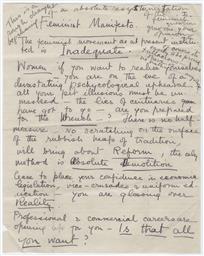 Feminist Manifesto.
The feminist movement as at present instituted is
Inadequate.
Women if you want to realise yourselves
you are on the eve of a
devastating psychological upheaval
all your pet illusions must be un
masked – the lies of centuries have
got to go – are you prepared
for the Wrench –? There is no half
measure – NO scratching on the surface
of the rubbish heap of tradition,
will bring about Reform, the only
method is Absolute Demolition
Cease to place your confidence in economic
legislation, vice-crusades & uniform ed
ucation – you are glossing over
Reality.
Professional & commercial careers are
opening up for you – Is that all
you want?